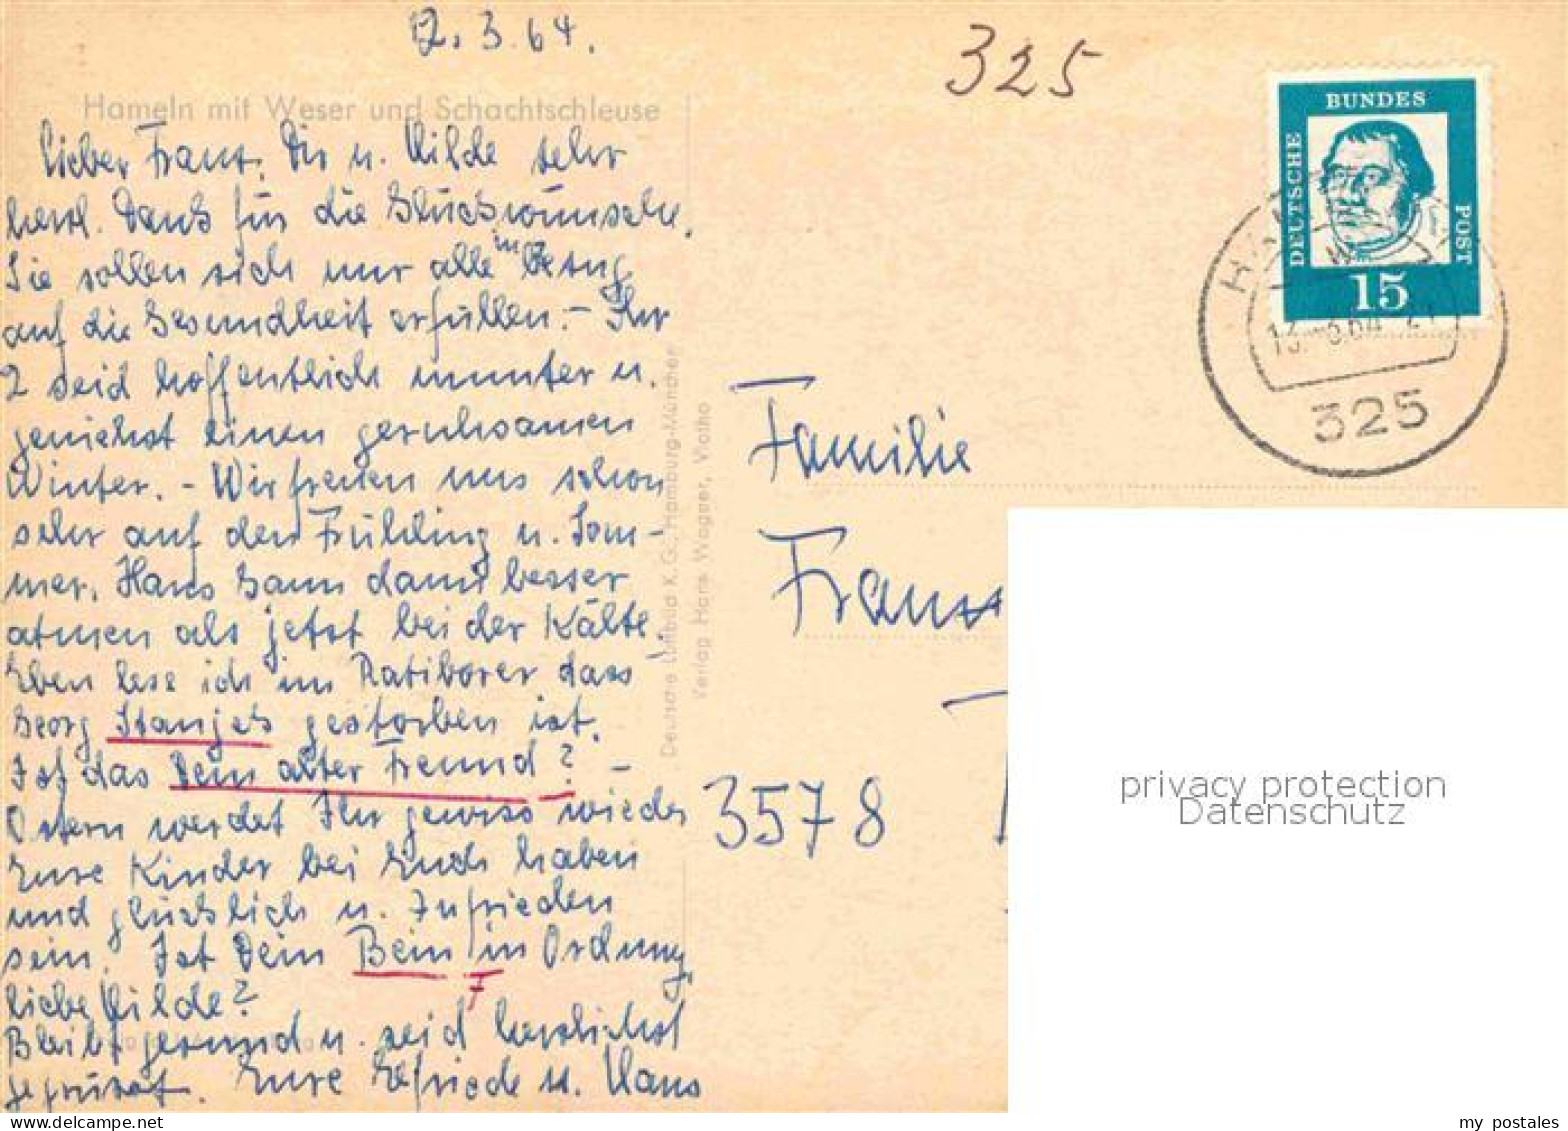 12. 3. 64.
325
Hameln mit Weser und Schachtschleuse
Lieber Franz, Dir u. Hilde sehr
herzl. Dank für die Glückwünsche.
Sie sollen sich nur alle in bezug
auf die Gesundheit erfüllen. – Ihr
2 seid hoffentlich munter u.
genießt einen geruhsamen
Winter. – Wir freuen uns schon
sehr auf den Frühling u. Som-
mer. Hans kann dann besser
atmen als jetzt bei der Kälte.
Eben lese ich im Ratiborer dass
Georg Stanjek gestorben ist.
Ist das Dein alter Freund? –
Ostern werdet Ihr gewiss wieder
Eure Kinder bei Euch haben
und glücklich u. zufrieden
sein. Ist Dein Bein in Ordnung,
liebe Hilde?
Bleibt gesund u. seid herzlichst
gegrüsst. Eure Elfriede u. Hans
Deutsche Luftbild K.G., Hamburg-München
Verlag Hans Wagner, Vlotho
DEUTSCHE
BUNDES
POST
15
13.-3.64-21
325
Familie
Franz
3578
privacy protection
Datenschutz
my postales